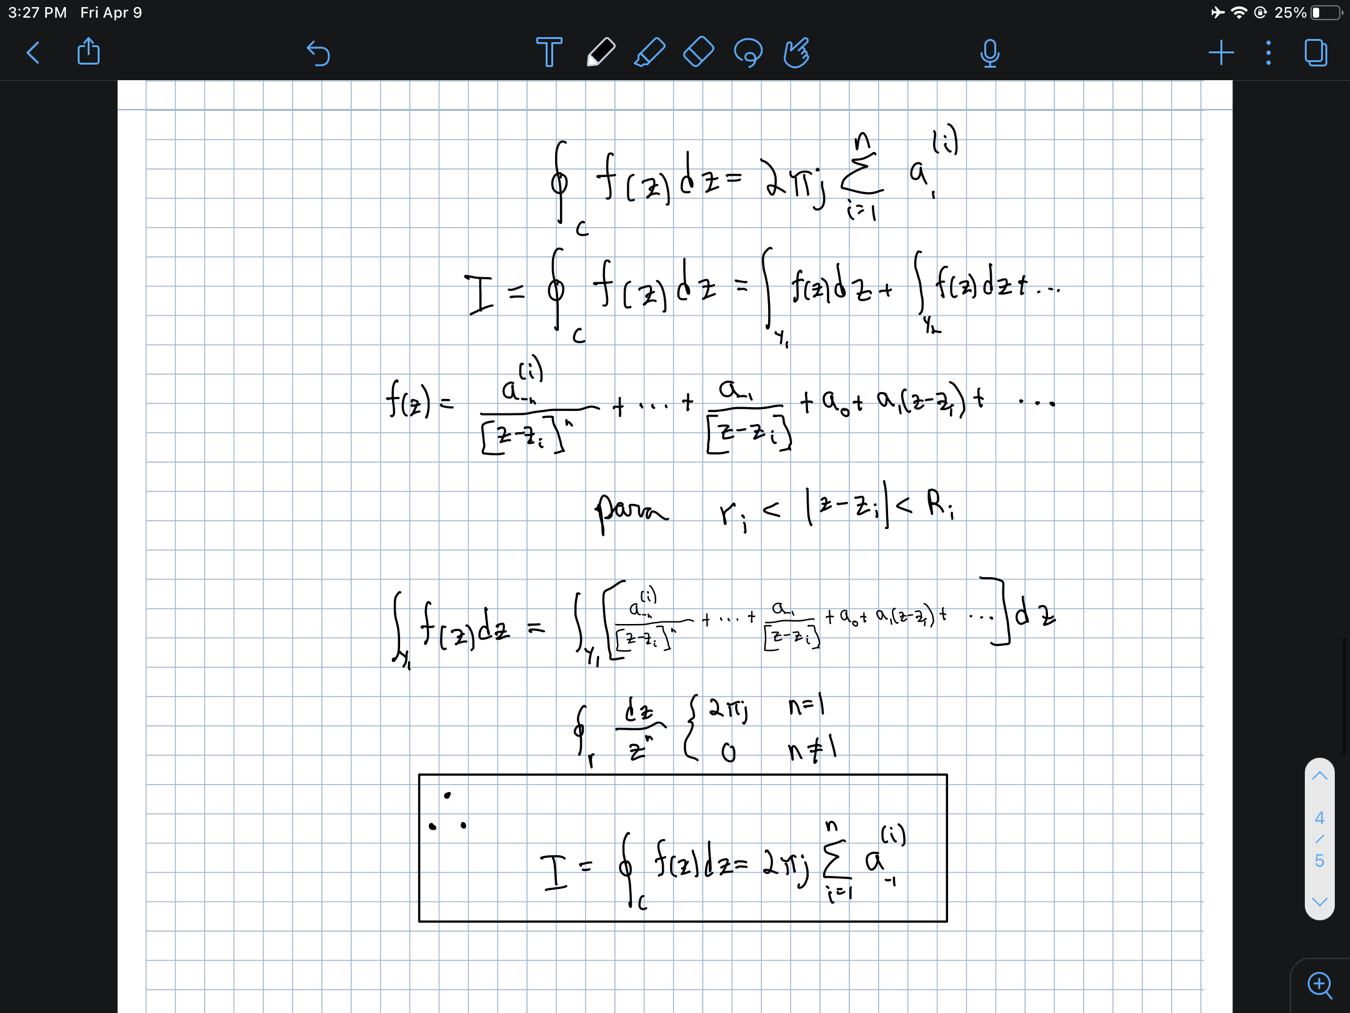 3:27 PM Fri Apr 9 25%
T
∮_C f(z)dz = 2πj ∑_{i=1}^{n} a_1^{(i)}
I = ∮_C f(z)dz = ∫_{γ_1} f(z)dz + ∫_{γ_2} f(z)dz + ...
f(z) = a_{-n}^{(i)}/[z-z_i]^n + ... + a_{-1}/[z-z_i] + a_0 + a_1(z-z_i) + ...
para r_i < |z-z_i| < R_i
∫_{γ_1} f(z)dz = ∫_{γ_1} [a_{-n}^{(i)}/[z-z_i]^n + ... + a_{-1}/[z-z_i] + a_0 + a_1(z-z_i) + ...] dz
∮_r dz/z^n { 2πj n=1
0 n≠1
∴
I = ∮_C f(z)dz = 2πj ∑_{i=1}^{n} a_{-1}^{(i)}
4
/
5